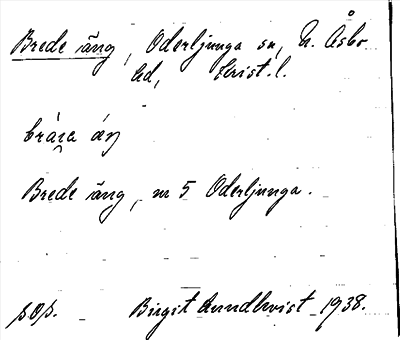 Brede äng, Oderljunga sn, N. Åsbo
hd, Krist. l.
Brede äng, nr 5 Oderljunga.
sOs. Birgit Lundkvist 1938.